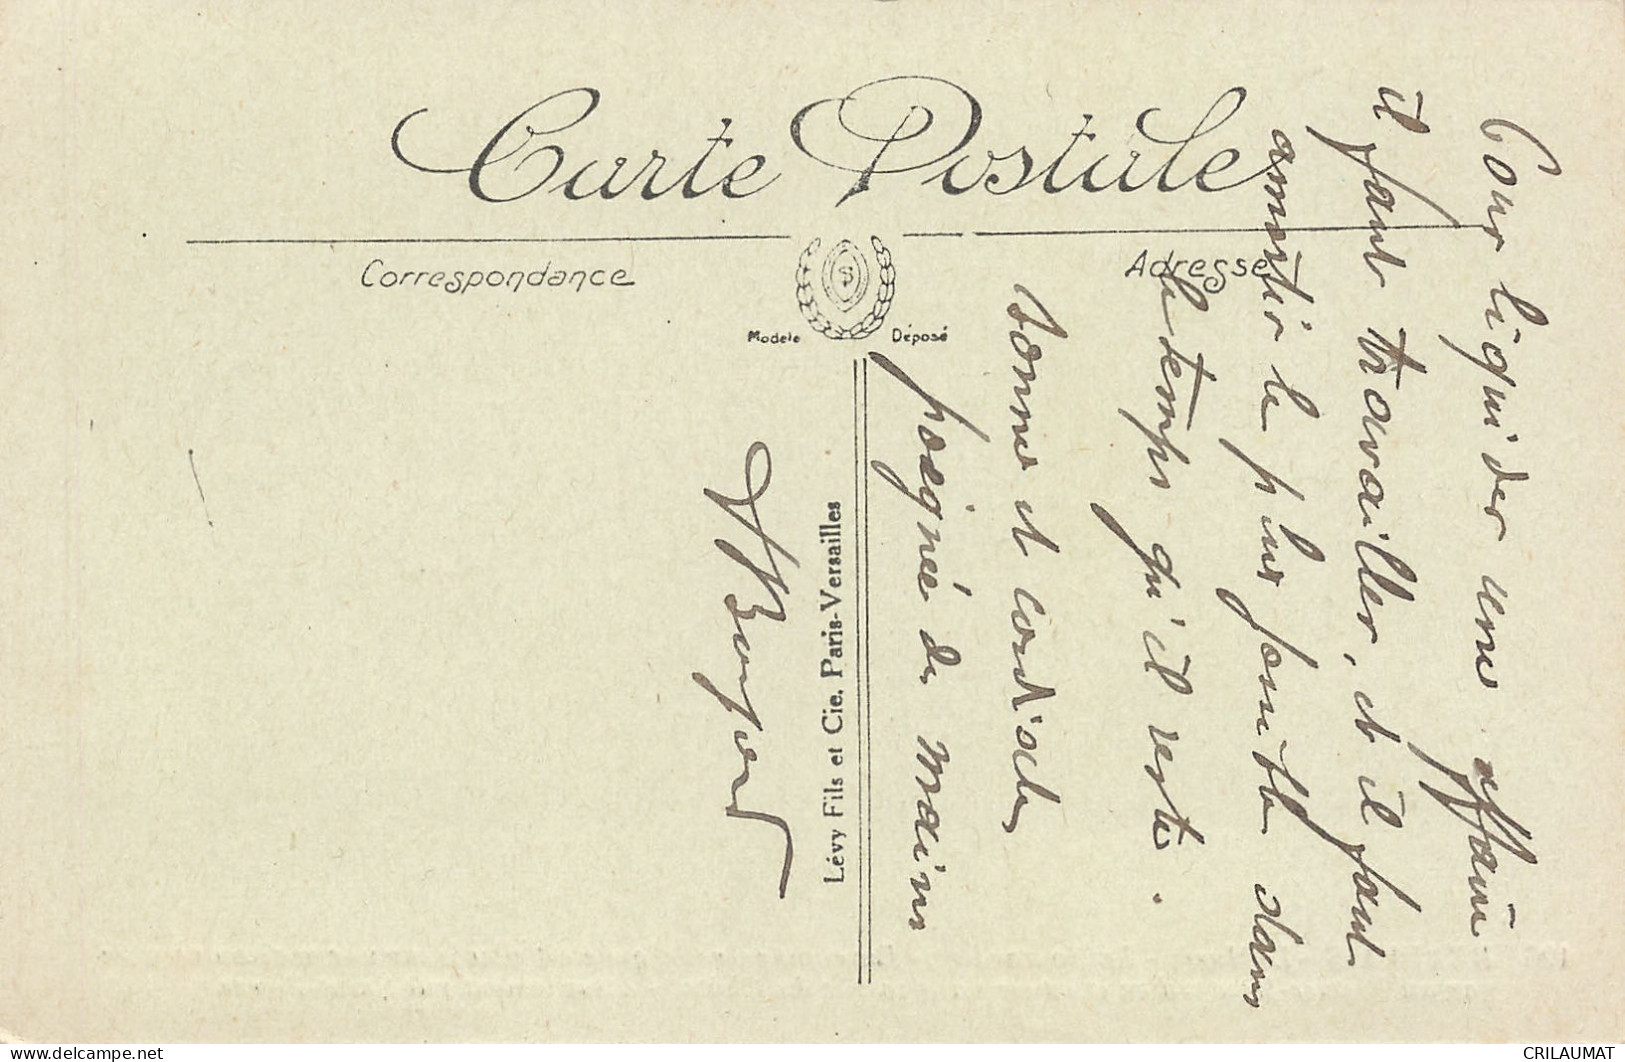 Carte Postale
Correspondance
Adresse
Modele Déposé
Lévy Fils et Cie. Paris-Versailles
Pour liquider une affaire
il faut travailler, et il faut
le plus possible dans
le temps qu'il reste.
Bonne et cordiale
poignée de mains
CRILAUMAT